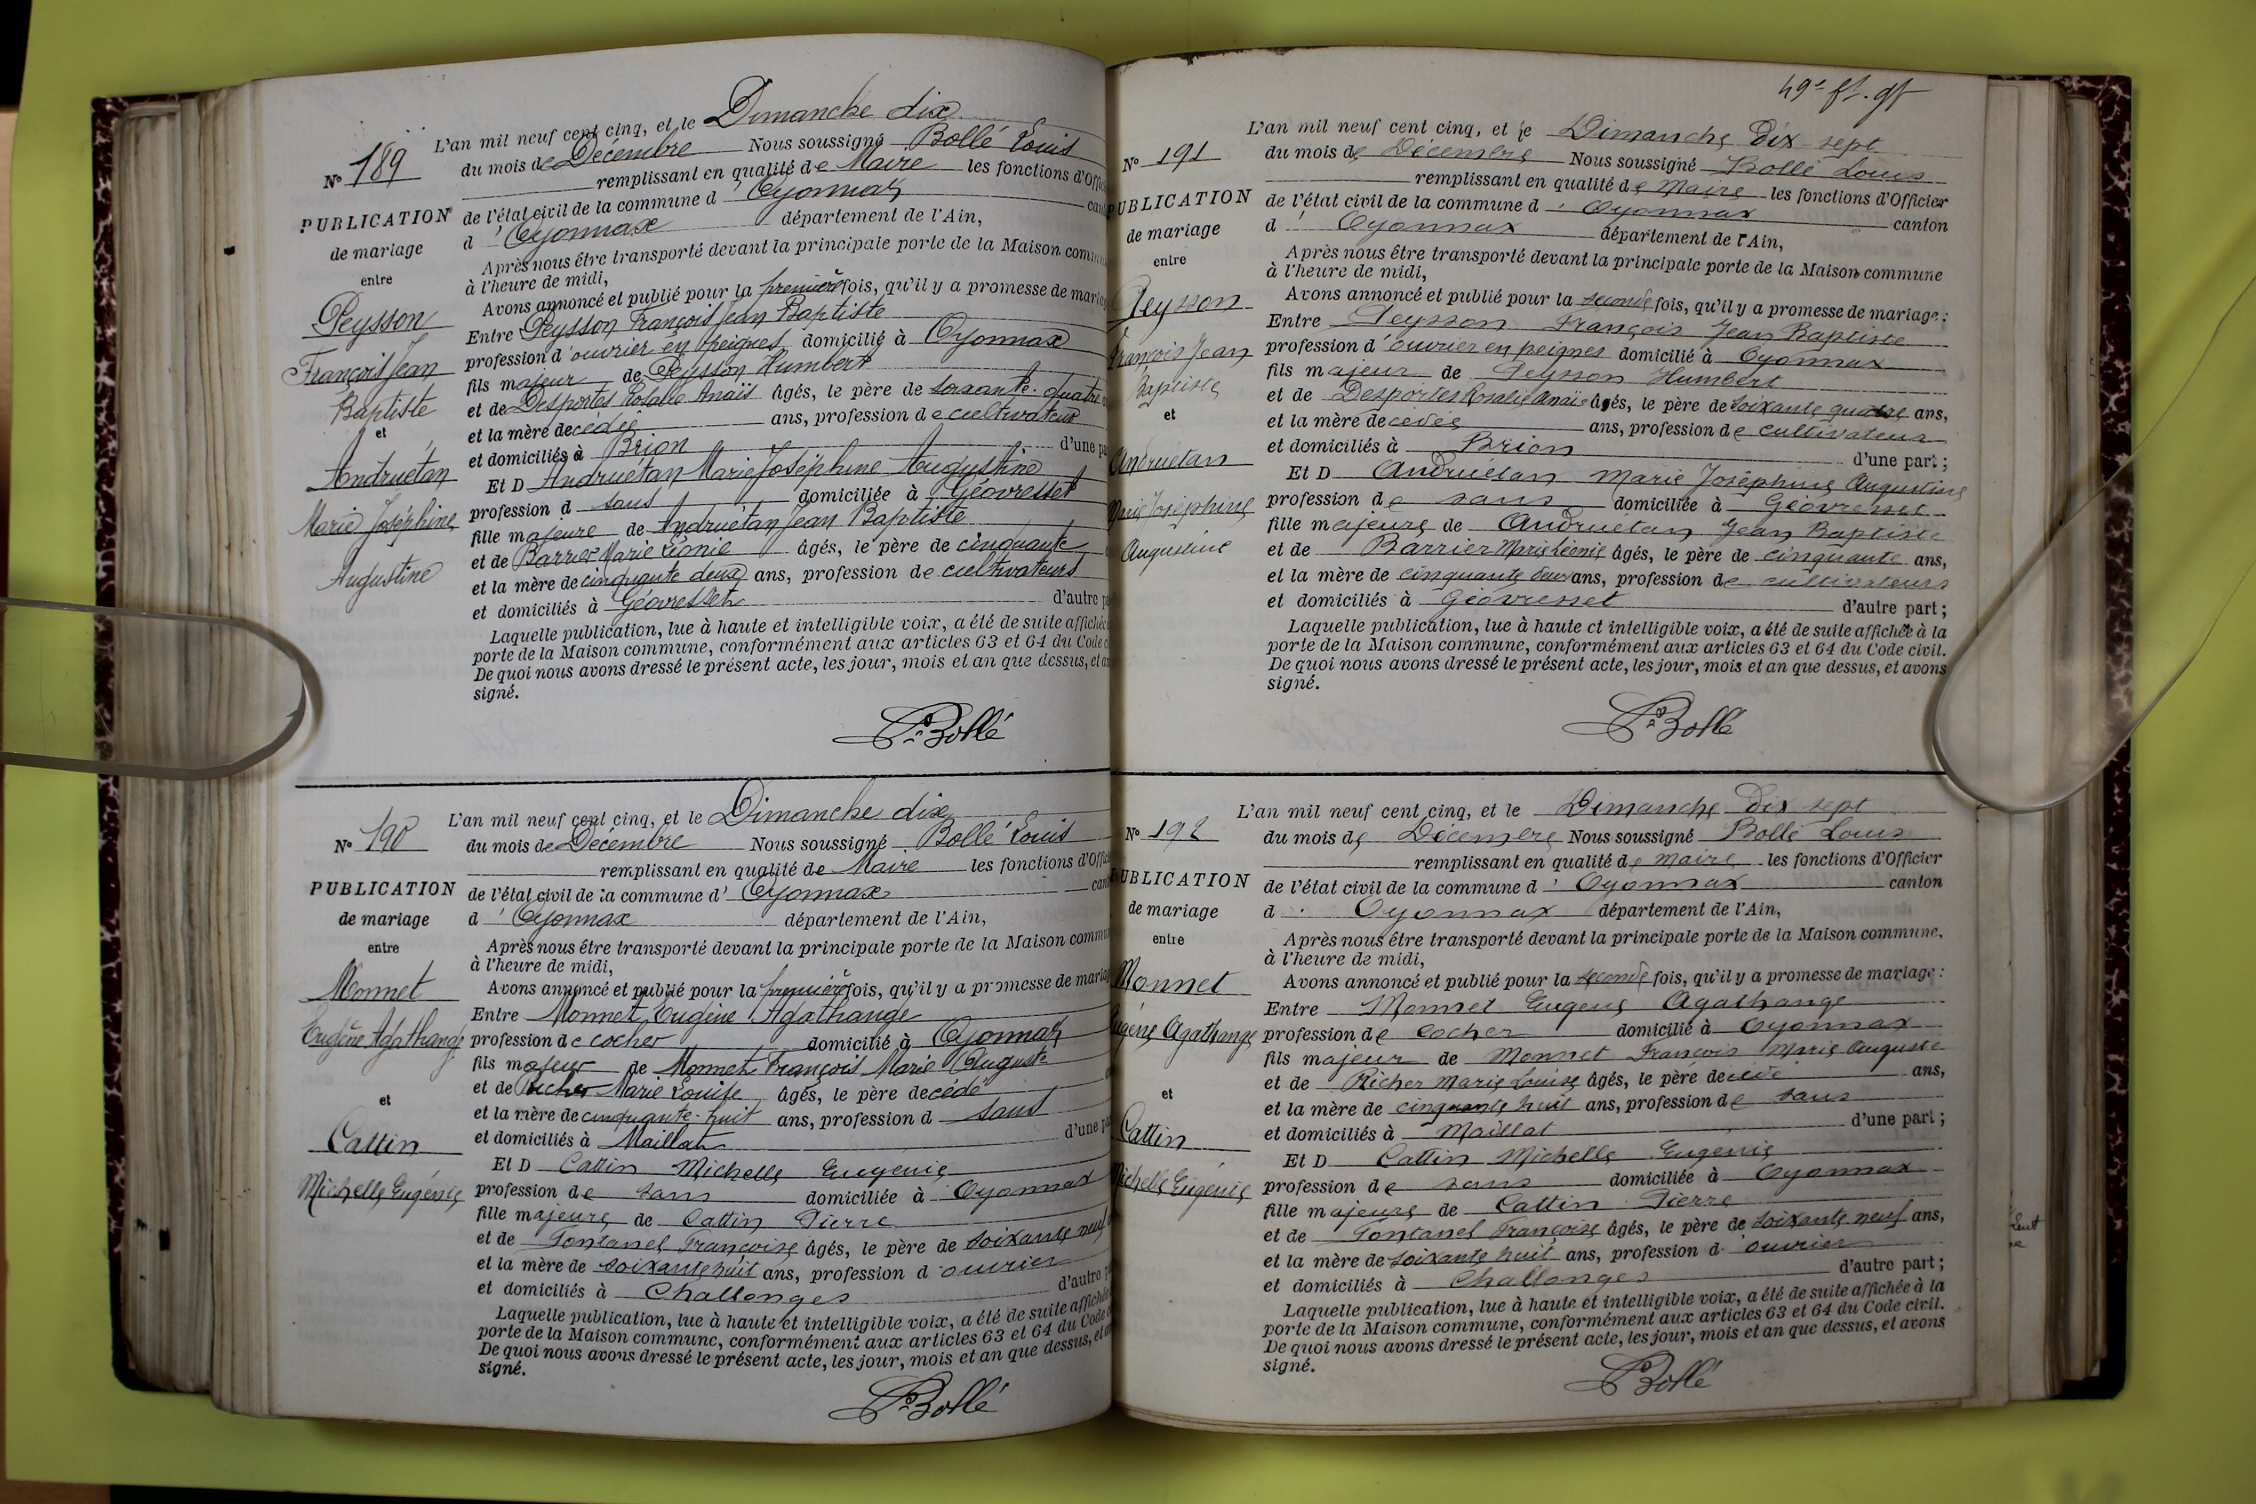 L'an mil neuf cent cinq, et le Dimanche dix
du mois de Décembre Nous soussigné Bollé Louis
N° 189
remplissant en qualité de Maire les fonctions d'Offic
PUBLICATION
de l'état civil de la commune d' Oyonnax can
de mariage
d' Oyonnax département de l'Ain,
Après nous être transporté devant la principale porte de la Maison commu
entre
à l'heure de midi,
Avons annoncé et publié pour la première fois, qu'il y a promesse de mariag
Peysson
Entre Peysson François Jean Baptiste
profession d'ouvrier en peignes domicilié à Oyonnax
François Jean
fils majeur de Peysson Humbert
Baptiste
et de Desportes Rosalie Anaïs âgés, le père de soixante-quatre
et
et la mère décédée ans, profession de cultivateur
et domiciliés à Brion d'une pa
Andruétan
Et D Andruétan Marie Joséphine Augustine
profession d sans domiciliée à Géovresset
Marie Joséphine
fille majeure de Andruétan Jean Baptiste
et de Barrier Marie Léonie âgés, le père de cinquante
Augustine
et la mère de cinquante deux ans, profession de cultivateurs
et domiciliés à Géovresset d'autre pa
Laquelle publication, lue à haute et intelligible voix, a été de suite affichée
porte de la Maison commune, conformément aux articles 63 et 64 du Code c
De quoi nous avons dressé le présent acte, les jour, mois et an que dessus, et av
signé.
L. Bollé
L'an mil neuf cent cinq, et le Dimanche dix
N° 190
du mois de Décembre Nous soussigné Bollé Louis
remplissant en qualité de Maire les fonctions d'Offic
PUBLICATION
de l'état civil de la commune d' Oyonnax cant
de mariage
d' Oyonnax département de l'Ain,
entre
Après nous être transporté devant la principale porte de la Maison commu
à l'heure de midi,
Monnet
Avons annoncé et publié pour la première fois, qu'il y a promesse de mariag
Entre Monnet Eugène Agathange
Eugène Agathange
profession de cocher domicilié à Oyonnax
fils majeur de Monnet François Marie Auguste
et de Richer Marie Louise âgés, le père décédé
et
et la mère de cinquante-huit ans, profession d sans
Cattin
et domiciliés à Maillat d'une pa
Et D Cattin Michelle Eugénie
Michelle Eugénie
profession de sans domiciliée à Oyonnax
fille majeure de Cattin Pierre
et de Fontanel Françoise âgés, le père de soixante neuf
et la mère de soixante huit ans, profession d'ouvrier
et domiciliés à Challonges d'autre pa
Laquelle publication, lue à haute et intelligible voix, a été de suite affichée
porte de la Maison commune, conformément aux articles 63 et 64 du Code c
De quoi nous avons dressé le présent acte, les jour, mois et an que dessus, et av
signé.
L. Bollé
L'an mil neuf cent cinq, et le Dimanche Dix sept
N° 191
du mois de Décembre Nous soussigné Bollé Louis
remplissant en qualité de Maire les fonctions d'Officier
PUBLICATION
de l'état civil de la commune d' Oyonnax canton
de mariage
d' Oyonnax département de l'Ain,
entre
Après nous être transporté devant la principale porte de la Maison commune
à l'heure de midi,
Peysson
Avons annoncé et publié pour la seconde fois, qu'il y a promesse de mariage:
Entre Peysson François Jean Baptiste
François Jean
profession d'ouvrier en peignes domicilié à Oyonnax
fils majeur de Peysson Humbert
Baptiste
et de Desportes Rosalie Anaïs âgés, le père de soixante quatre ans,
et
et la mère décédée ans, profession de cultivateur
et domiciliés à Brion d'une part;
Andruétan
Et D Andruétan Marie Joséphine Augustine
profession de sans domiciliée à Géovresset
Marie Joséphine
fille majeure de Andruétan Jean Baptiste
Augustine
et de Barrier Marie Léonie âgés, le père de cinquante ans,
et la mère de cinquante deux ans, profession de cultivateurs
et domiciliés à Géovresset d'autre part;
Laquelle publication, lue à haute et intelligible voix, a été de suite affichée à la
porte de la Maison commune, conformément aux articles 63 et 64 du Code civil.
De quoi nous avons dressé le présent acte, les jour, mois et an que dessus, et avons
signé.
L. Bollé
L'an mil neuf cent cinq, et le Dimanche Dix sept
N° 192
du mois de Décembre Nous soussigné Bollé Louis
remplissant en qualité de maire les fonctions d'Officier
PUBLICATION
de l'état civil de la commune d' Oyonnax canton
de mariage
d' Oyonnax département de l'Ain,
entre
Après nous être transporté devant la principale porte de la Maison commune,
à l'heure de midi,
Monnet
Avons annoncé et publié pour la seconde fois, qu'il y a promesse de mariage:
Entre Monnet Eugène Agathange
Eugène Agathange
profession de cocher domicilié à Oyonnax
fils majeur de Monnet François Marie Auguste
et de Richer Marie Louise âgés, le père décédé ans,
et
et la mère de cinquante huit ans, profession de sans
Cattin
et domiciliés à Maillat d'une part;
Et D Cattin Michelle Eugénie
Michelle Eugénie
profession de sans domiciliée à Oyonnax
fille majeure de Cattin Pierre
et de Fontanel Françoise âgés, le père de soixante neuf ans,
et la mère de soixante huit ans, profession d'ouvrier
et domiciliés à Challonges d'autre part;
Laquelle publication, lue à haute et intelligible voix, a été de suite affichée à la
porte de la Maison commune, conformément aux articles 63 et 64 du Code civil.
De quoi nous avons dressé le présent acte, les jour, mois et an que dessus, et avons
signé.
L. Bollé